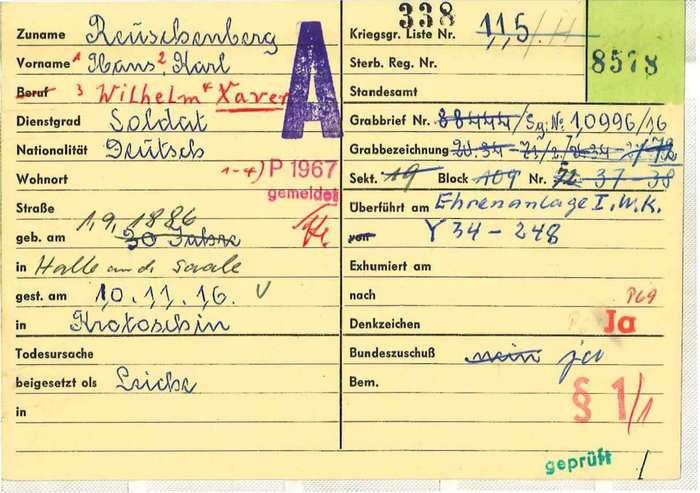 338
Zuname Reuschenberg
Vorname 1 Hans, 2 Karl
Beruf 3 Wilhelm 4 Xaver
Dienstgrad Soldat
Nationalität Deutsch
Wohnort 1-4) P 1967
gemeldet
Straße
1.9.1886
geb. am 30 Jahre
in Halle an d. Saale
gest. am 10.11.16. V
in Krotoschin
Todesursache
beigesetzt als Leiche
in
A
Kriegsgr. Liste Nr. 115
8578
Sterb. Reg. Nr.
Standesamt
Grabbrief Nr. 38444/Sg. Nr. 10996/16
Grabbezeichnung
Sekt. 19 Block 109 Nr. 72 37-38
Überführt am Ehrenanlage I.W.K.
von Y34-248
Exhumiert am
nach P69
Denkzeichen Ja
Bundeszuschuß nein ja
Bem.
§ 1/1
geprüft